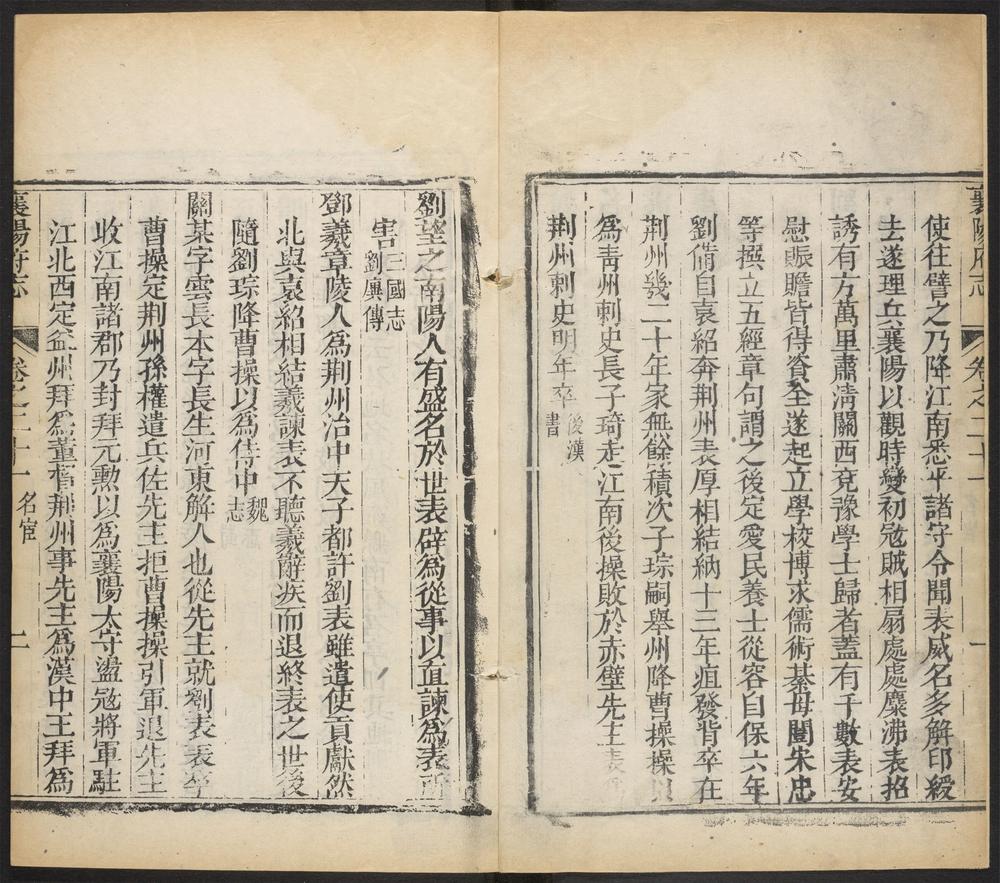 襄陽府志
卷之二十一
一
使往譬之乃降江南悉平諸守令聞表威名多解印綬
去遂理兵襄陽以觀時變初寇賊相扇處處麋沸表招
誘有方萬里肅清關西兗豫學士歸者蓋有千數表安
慰賑贍皆得資全遂起立學校博求儒術綦毋闓朱忠
等撰立五經章句謂之後定愛民養士從容自保六年
劉備自袁紹奔荆州表厚相結納十三年疽發背卒在
荆州幾二十年家無餘積次子琮嗣舉州降曹操操以
爲青州刺史長子琦走江南後操敗於赤壁先主表
荆州刺史明年卒後漢
書
劉望之南陽人有盛名於世表辟爲從事以直諫爲表所
害三國志
劉廙傳
鄧羲章陵人爲荆州治中天子都許劉表雖遣使貢獻然
北與袁紹相結羲諫表不聽羲辭疾而退終表之世後
隨劉琮降曹操以爲侍中魏
志
關某字雲長本字長生河東解人也從先主就劉表表卒
曹操定荆州孫權遣兵佐先主拒曹操操引軍退先主
收江南諸郡乃封拜元勲以爲襄陽太守盪寇將軍駐
江北西定益州拜爲董督荆州事先主爲漢中王拜爲
襄陽府志
卷之二十一
名宦
二